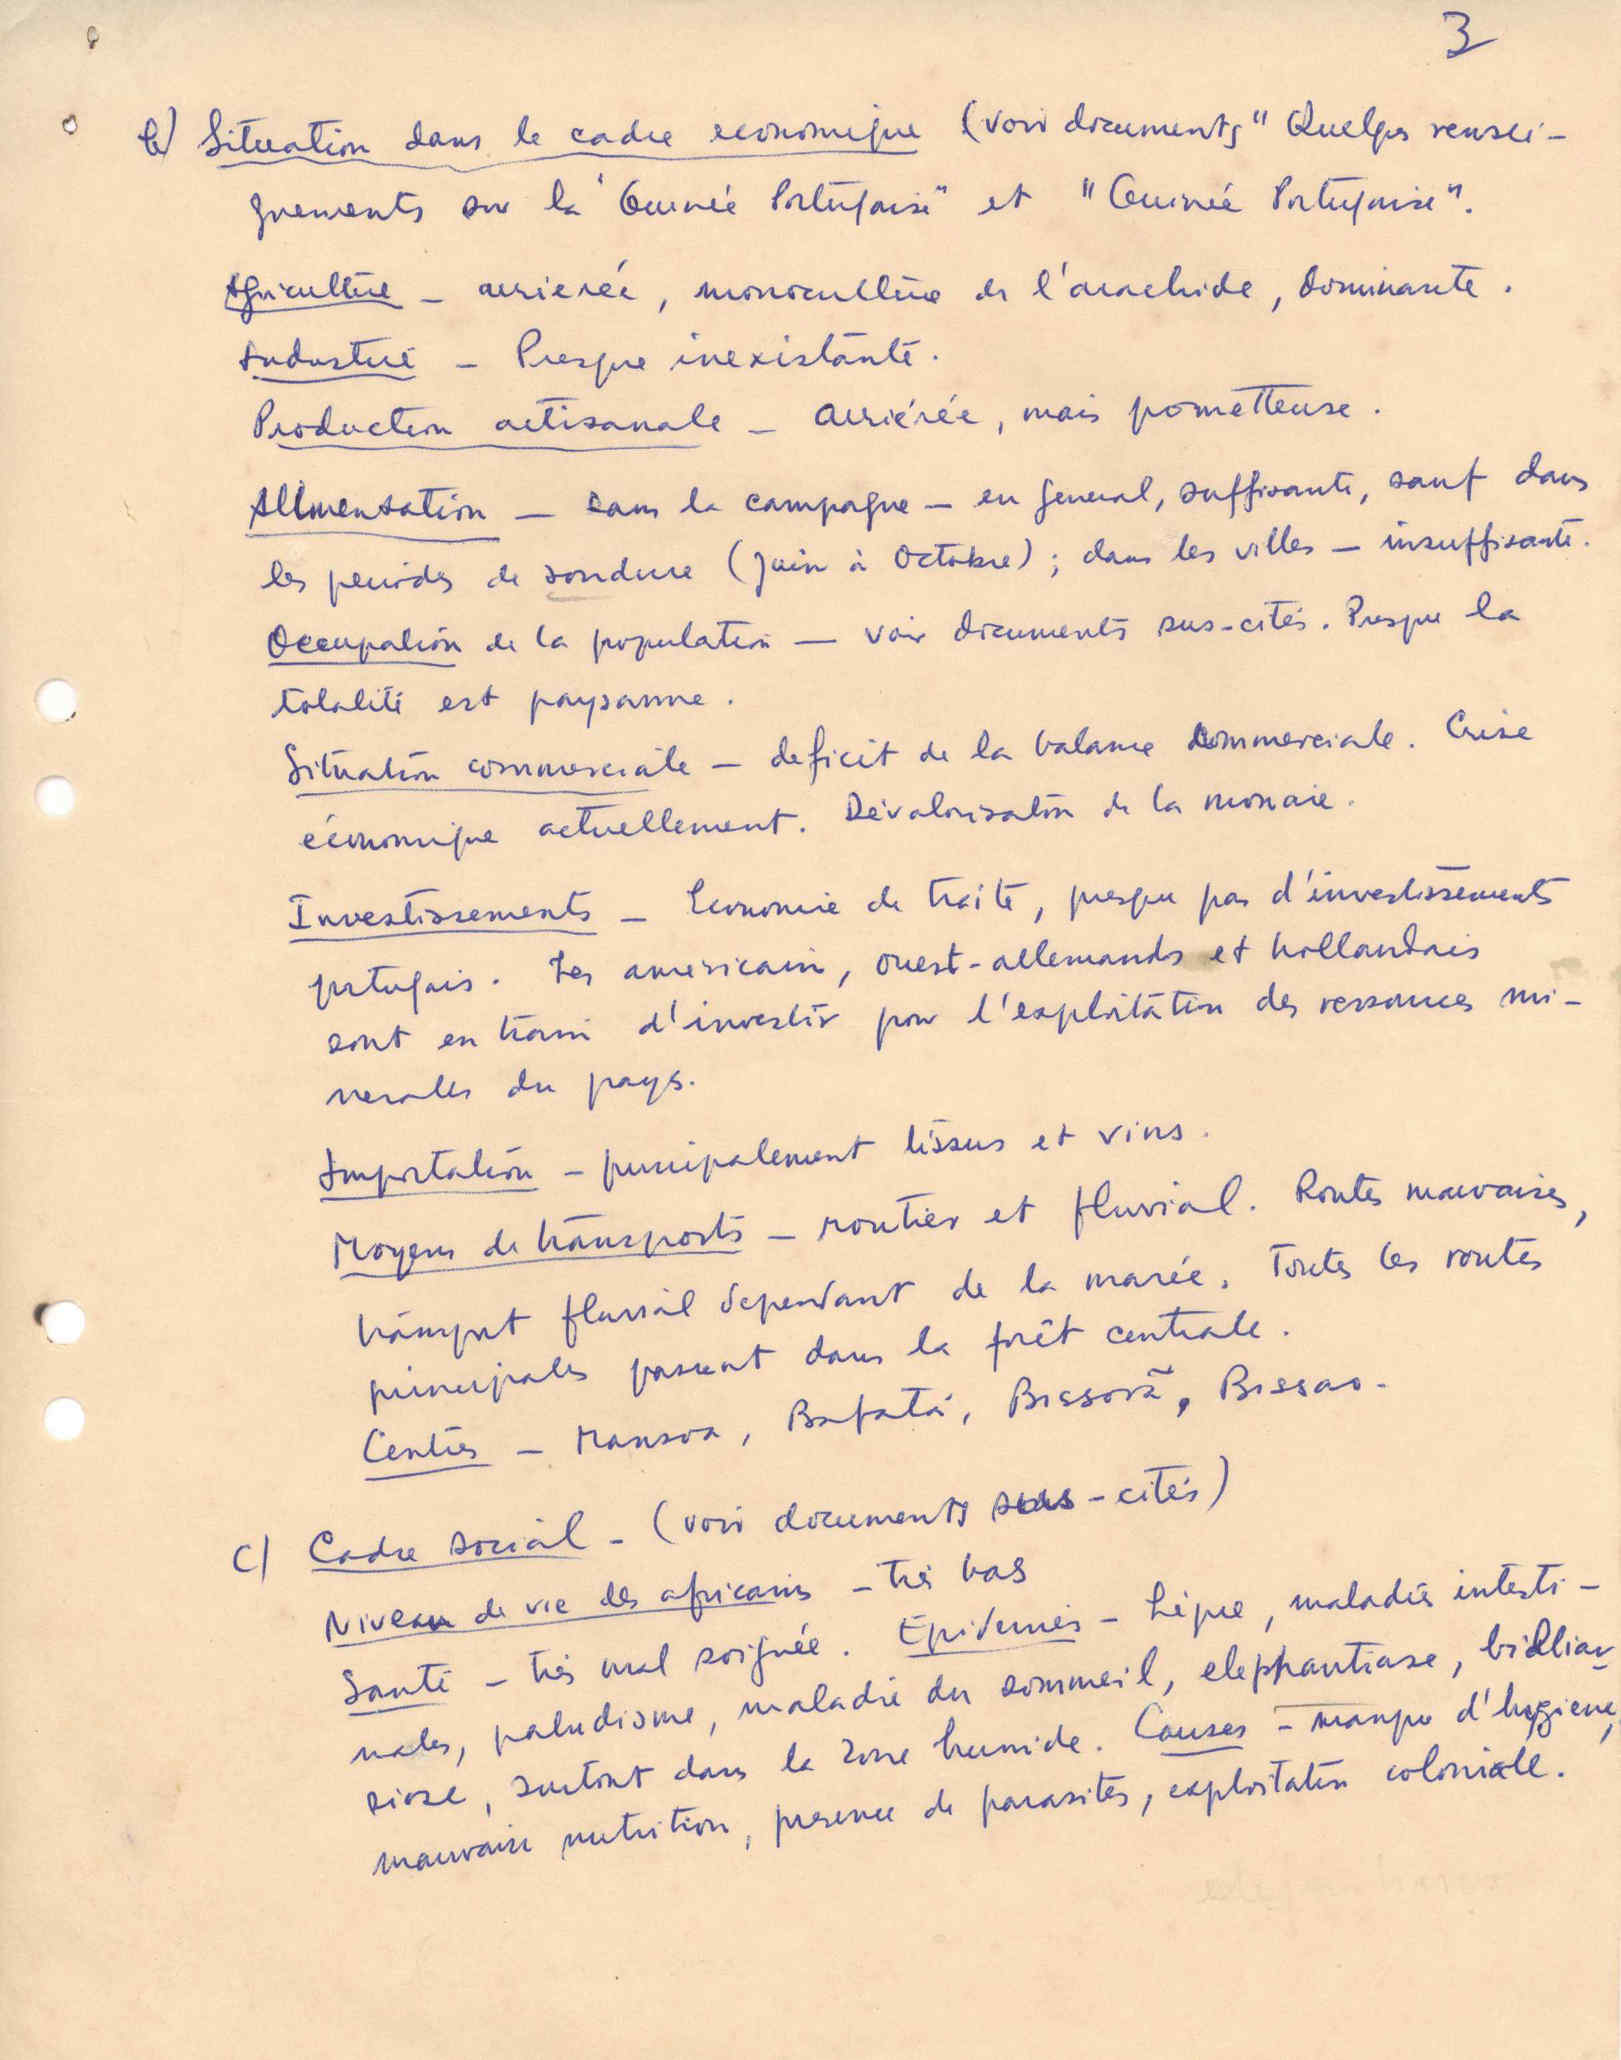 3
b) Situation dans le cadre economique (voir documents "Quelqs rensei-
gnements sur la "Guinée Portugaise" et "Guinée Portugaise".
Agriculture - arrierée, monoculture de l'arachide, dominante.
Industrie - Presque inexistante.
Production artisanale - arriérée, mais prometteuse.
Alimentation - dans la campagne - en general, suffisante, sauf dans
les periodes de soudure (Juin à Octobre); dans les villes - insuffisante.
Occupation de la population - voir documents sus-cités. Presque la
totalité est paysanne.
Situation commerciale - deficit de la balance commerciale. Crise
économique actuellement. Dévalorisation de la monaie.
Investissements - Economie de traite, presque pas d'investissements
portugais. Les americains, ouest-allemands et hollandais
sont en train d'investir pour l'exploitation des ressources mi-
nerales du pays.
Importation - principalement tissus et vins.
Moyens de transports - routier et fluvial. Routes mauvaises,
transport fluvial dependant de la marée. Toutes les routes
principales passent dans la forêt centrale.
Centres - Mansoa, Bafatá, Bissorã, Bissao.
c) Cadre social - (voir documents sus-cités)
Niveau de vie des africains - très bas
Santé - très mal soignée. Epidemies - Lèpre, maladies intesti-
nales, paludisme, maladie du sommeil, elephantiase, bilhar-
ziose, surtout dans la zone humide. Causes - manque d'hygiene,
mauvaise nutrition, presence de parasites, exploitation coloniale.